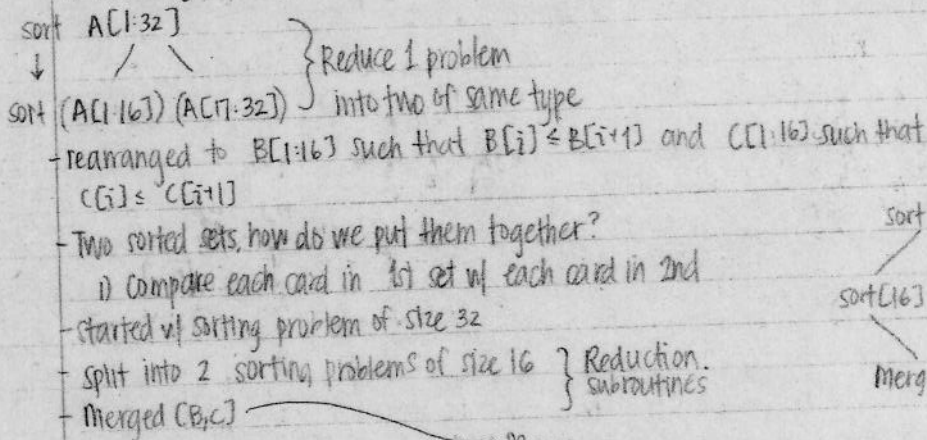 sort A[1:32]
↓ } Reduce 1 problem
sort (A[1:16]) (A[17:32]) into two of same type
- rearranged to B[1:16] such that B[i] ≤ B[i+1] and C[1:16] such that
C[i] ≤ C[i+1]
- Two sorted sets, how do we put them together?
1) Compare each card in 1st set w/ each card in 2nd
sort
- started w/ sorting problem of size 32
sort[16]
- split into 2 sorting problems of size 16 } Reduction.
subroutines
Merg
- Merged [B,C]